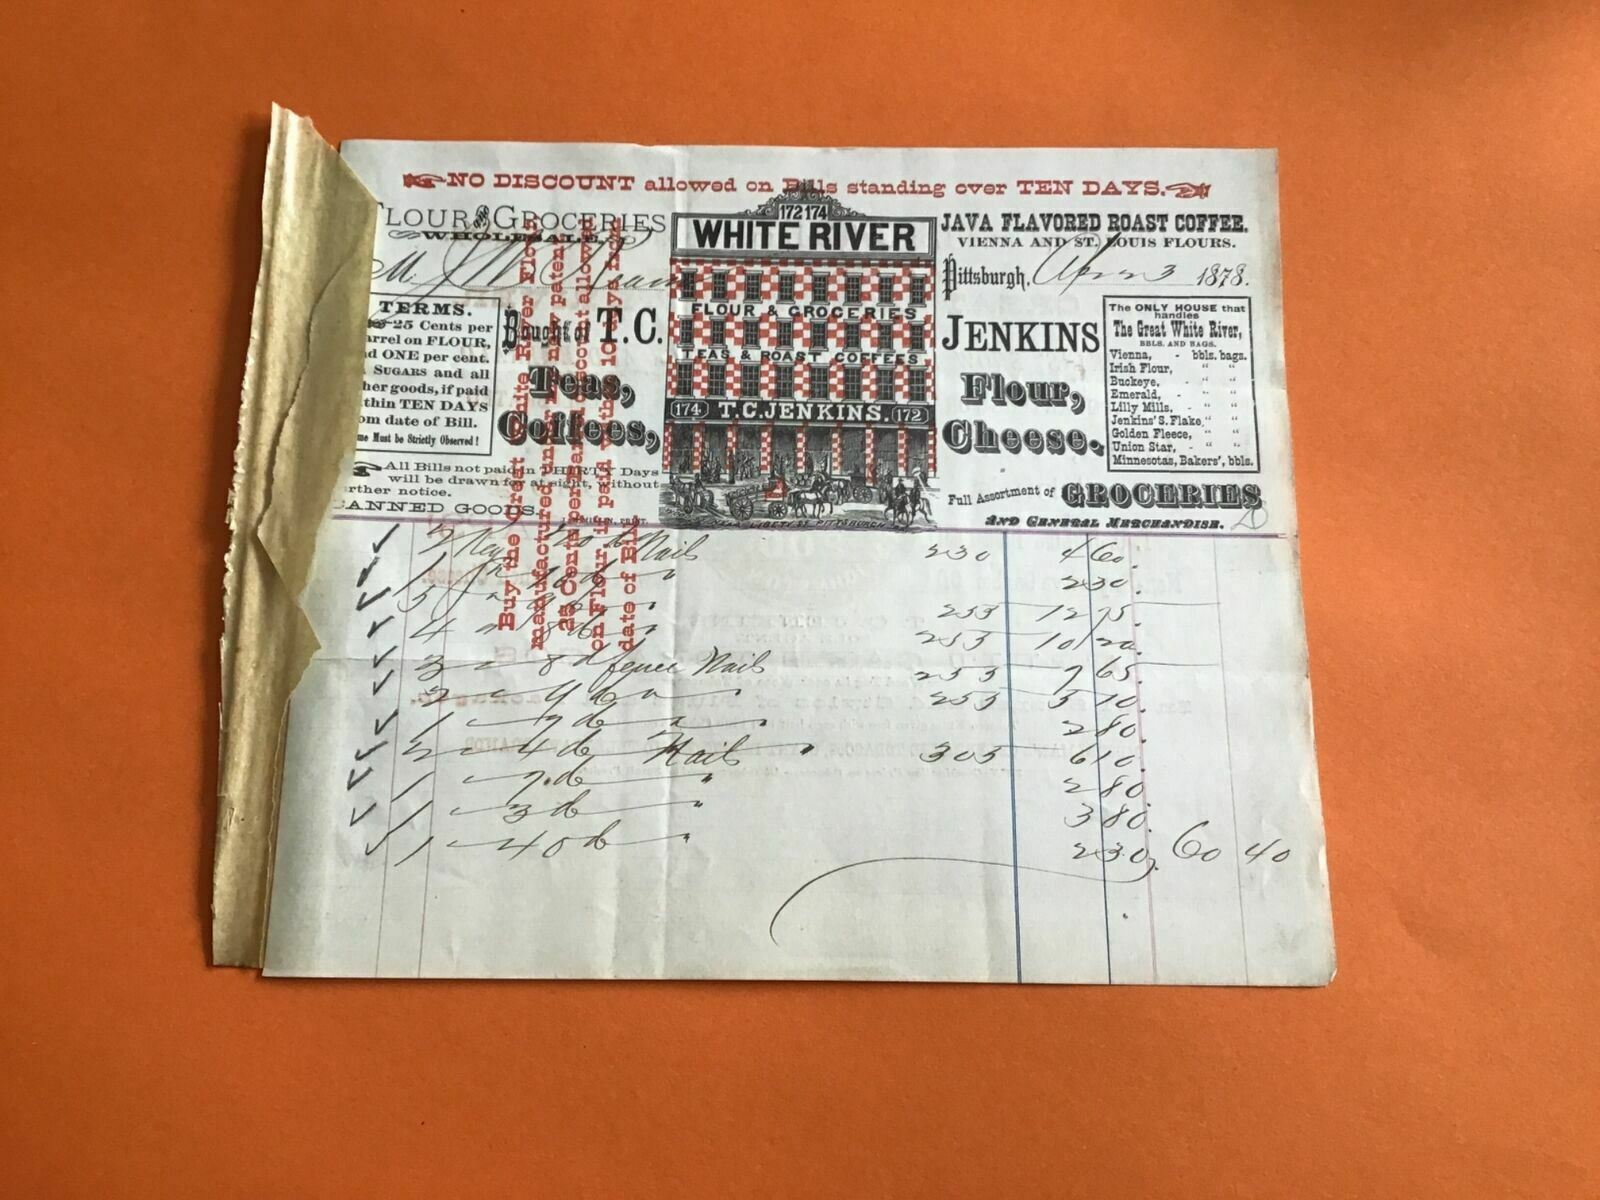 NO DISCOUNT allowed on Bills standing over TEN DAYS.
FLOUR AND GROCERIES
WHOLESALE.
172 174
WHITE RIVER
FLOUR & GROCERIES
TEAS & ROAST COFFEES
174 T.C. JENKINS. 172
LIBERTY ST. PITTSBURGH
JAVA FLAVORED ROAST COFFEE.
VIENNA AND ST. LOUIS FLOURS.
Pittsburgh, 3 1878.
M.
TERMS.
25 Cents per
arrel on FLOUR,
nd ONE per cent.
SUGARS and all
her goods, if paid
thin TEN DAYS
om date of Bill.
me Must be Strictly Observed!
Bought of T.C.
JENKINS
Teas,
Coffees,
Flour,
Cheese.
The ONLY HOUSE that
handles
The Great White River,
BBLS. AND BAGS.
Vienna, - bbls. bags.
Irish Flour, " "
Buckeye, - " "
Emerald, - " "
Lilly Mills, - " "
Jenkins' S. Flake, " "
Golden Fleece, " "
Union Star, - " "
Minnesotas, Bakers', bbls.
All Bills not paid in THIRTY Days
will be drawn for at sight, without
rther notice.
CANNED GOODS.
Full Assortment of GROCERIES
AND GENERAL MERCHANDISE.
Buy the Great White River Flour
manufactured under new patent
25 Cents per barrel discount allowed
on Flour if paid within 10 days from
date of Bill.
2 Kegs Nails 230 4 60
1 " 2 30
5 " 255 12 75
4 " 8 d " 255 10 20
3 " 8 d fence Nails 255 7 65
2 " 9 d " " 255 5 10
1 " 7 d " " 2 80
2 " 4 d Nails " 305 6 10
1 " 7 d " 2 80
1 " 3 d " 3 80
1 " 40 d " 2 30 60 40